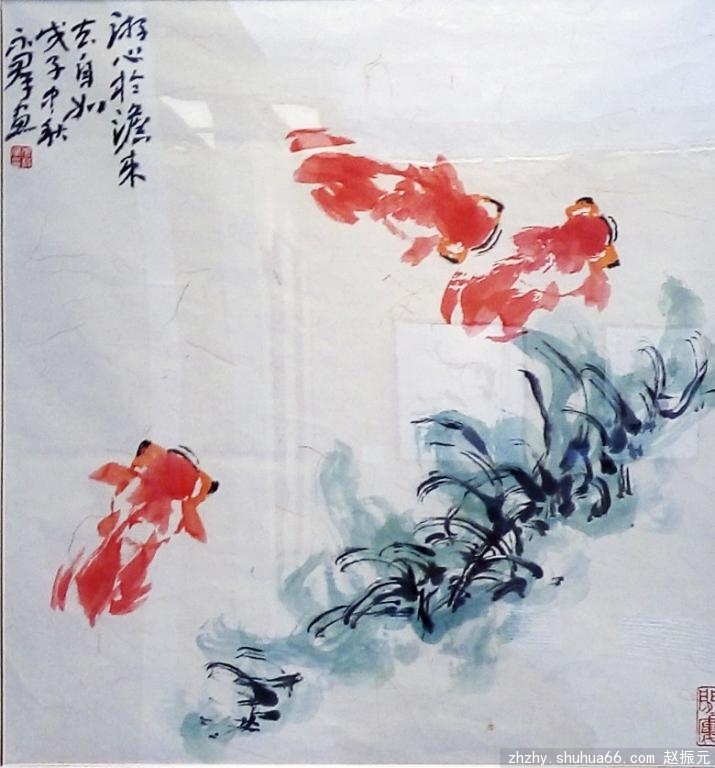 游心於澹来
去自如
戊子中秋
永羣畫
zhzhy.shuhua66.com 赵振元